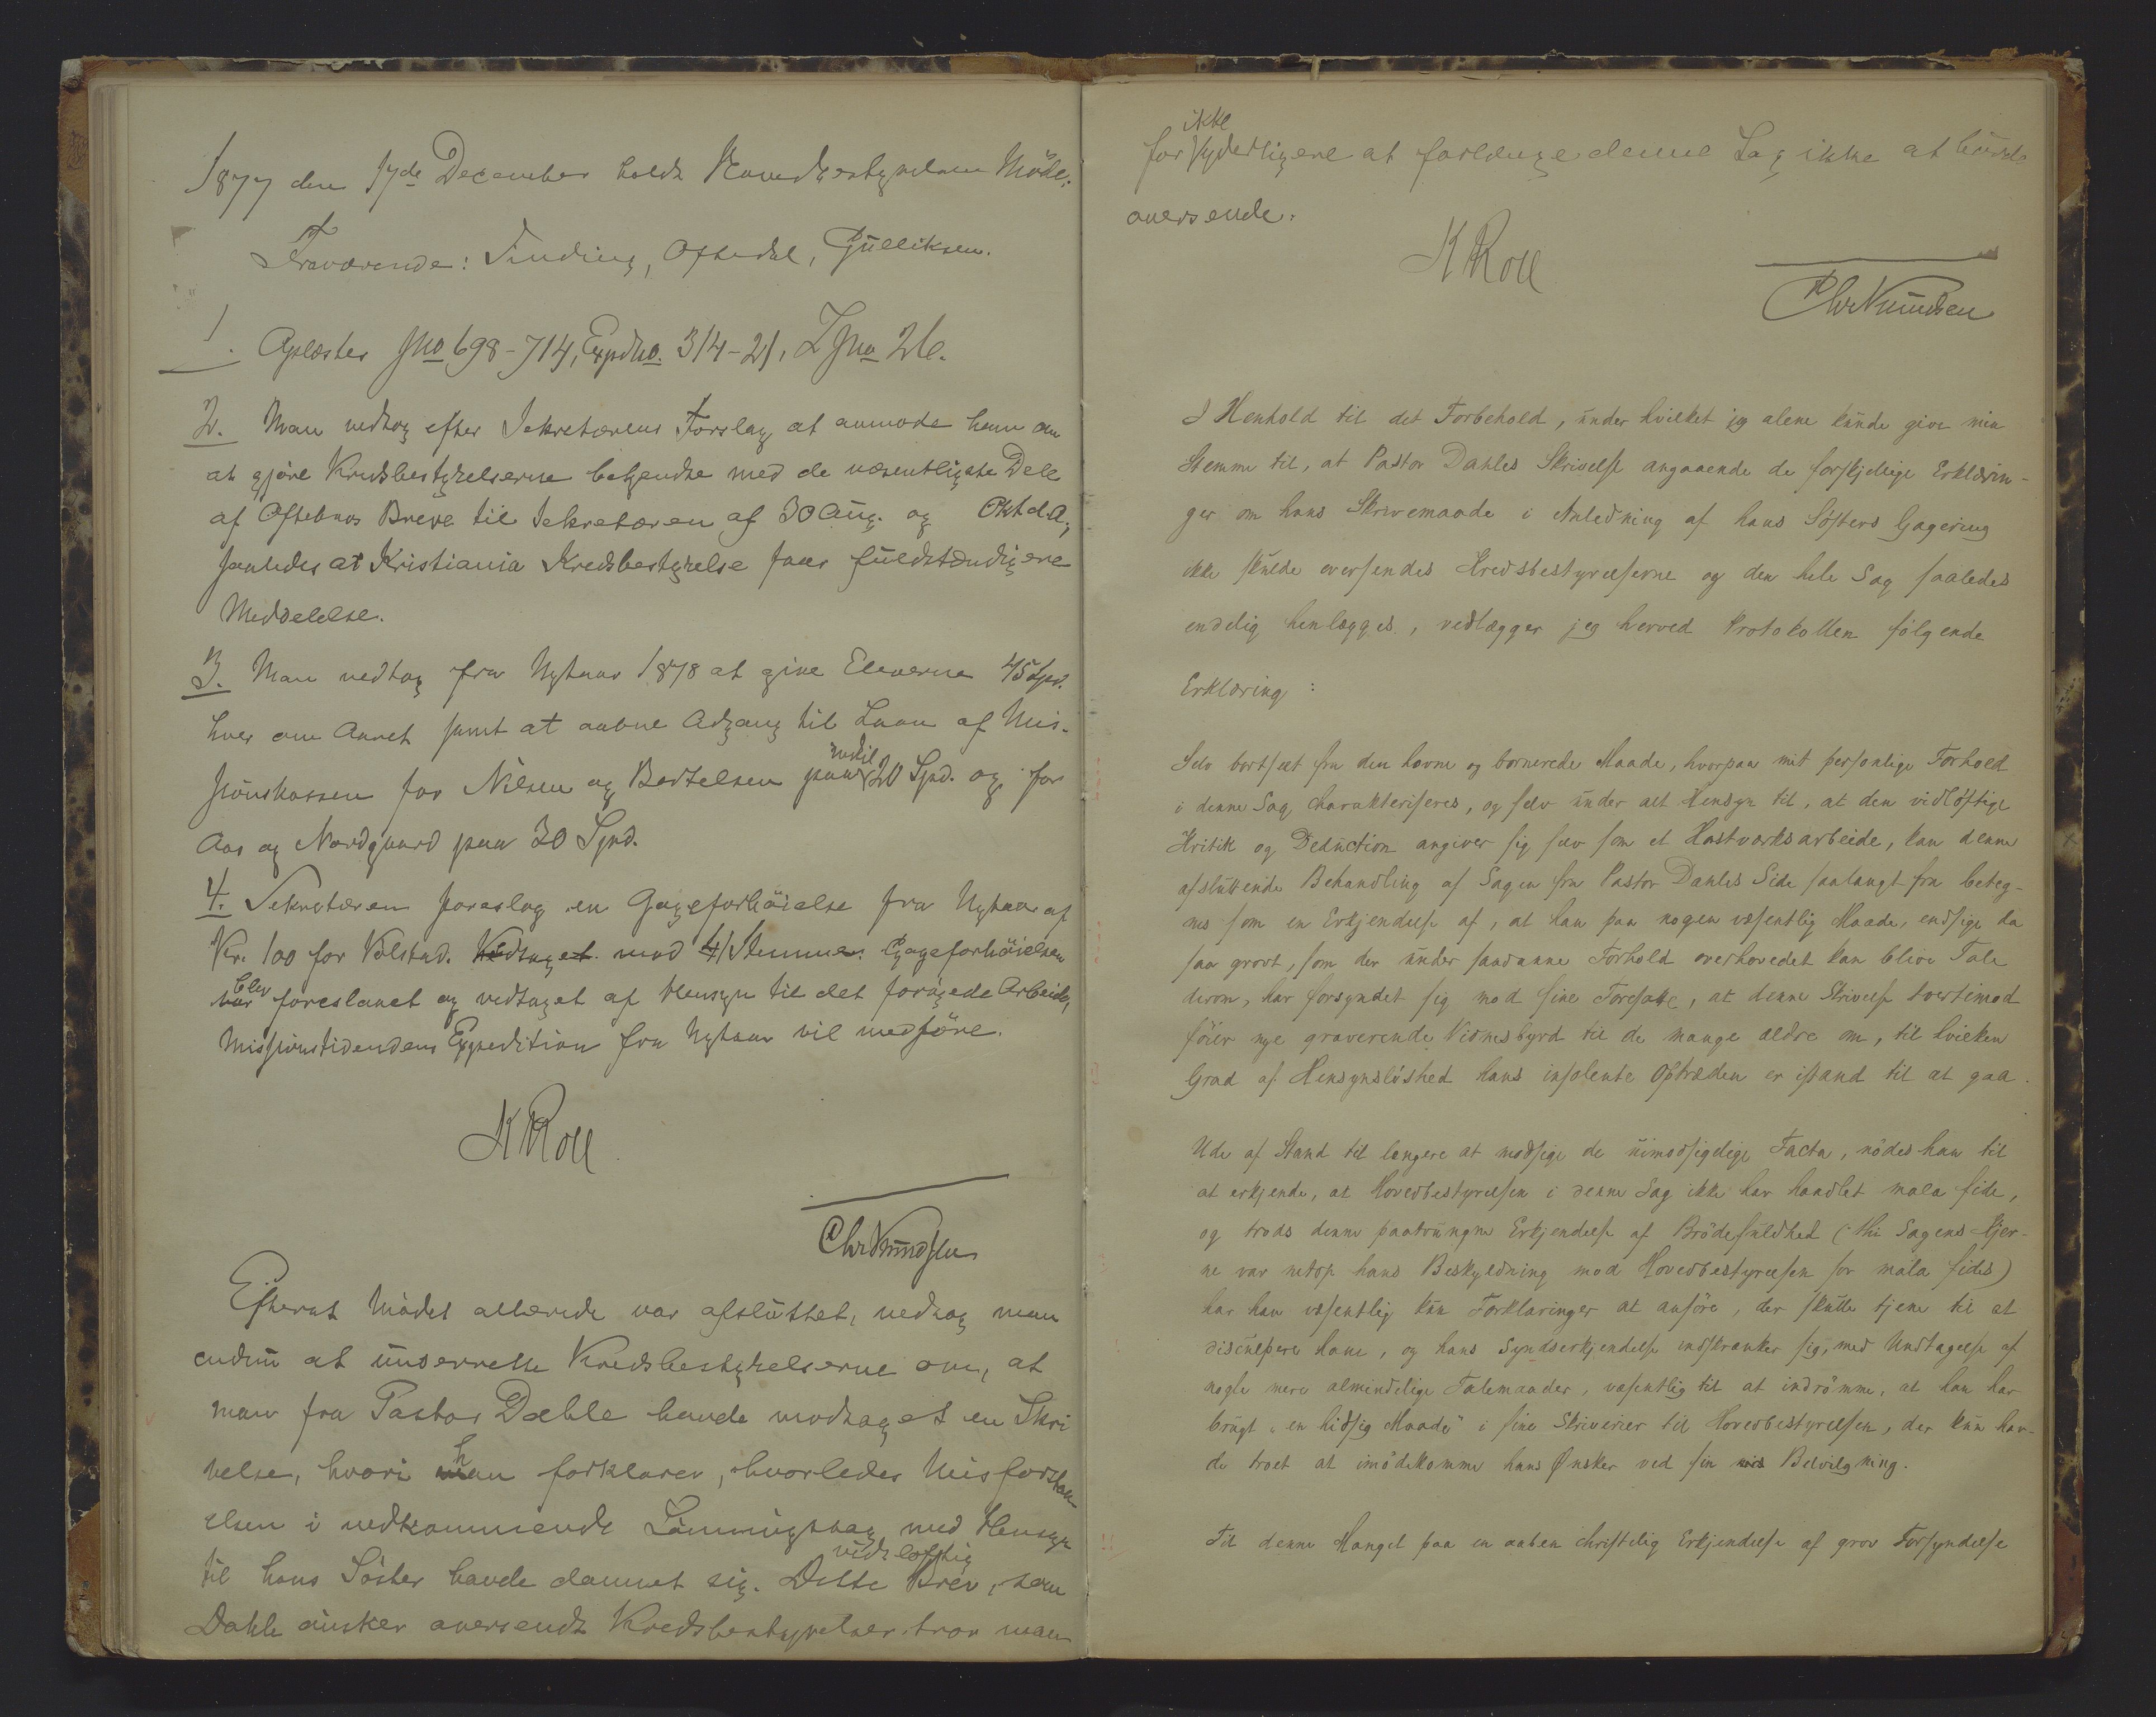 1877 den 17de December holdt Hovedbestyrelsen Möde.
Fraværende: Finding, Oftedal, Gulliksen.
1. Oplæstes Jno 698-714, Expdno. 314-21, LJno 26.
2. Man vedtog efter Sekretærens Forslag at anmode ham om
at gjöre Kredsbestyrelserne bekjendte med de væsentligste Dele
af Oftebros Breve til Sekretæren af 30 Aug. og Okt d.A.,
saaledes at Kristiania Kredsbestyrelse faar fuldstændigere
Meddelelse.
3. Man vedtog fra Nytaar 1878 at give Eleverne 45 Spd.
hver om Aaret samt at aabne Adgang til Laan af Mis-
sionskassen for Nilsen og Bertelsen paa indtil 20 Spd. og for
Aas og Nordgaard paa 30 Spd.
4. Sekretæren foreslog en Gageforhöielse fra Nytaar af
Kr. 100 for Volstad. Vedtaget mod 1 Stemme. Gageforhöielsen
blev foreslaaet og vedtaget af Hensyn til det forögede Arbeide,
Missionstidendens Expedition fra Nytaar vil medföre.
K Roll
Chr Knudsen
Efterat Mödet allerede var afsluttet, vedtog man
endnu at underrette Kredsbestyrelserne om, at
man fra Pastor Dahle havde modtaget en Skri
velse, hvori han forklarer, hvorledes Misforstaa
elsen i vedkommende Lönningssag med Hensyn
til hans Söster havde dannet sig. Dette vidtlöftig Brev, som
Dahle önsker oversendt Kredsbestyrelser tror man
for ikke yderligere at forlænge denne Sag ikke at burde
oversende.
K Roll
Chr Knudsen
I Henhold til det Forbehold, under hvilket jeg alene kunde give min
Stemme til, at Pastor Dahles Skrivelse angaaende de forskjellige Erklærin-
ger om hans Skrivemaade i Anledning af hans Sösters Gagering
ikke skulde oversendes Kredsbestyrelserne og den hele Sag saaledes
endelig henlægges, vedlægger jeg herved Protokollen fölgende
Erklæring:
Selv bortseet fra den hovne og bornerede Maade, hvorpaa mit personlige Forhold
i denne Sag charakteriseres, og selv under alt Hensyn til, at den vidlöftige
Kritik og Deduction angiver sig selv som et Hastværksarbeide, kan denne
afsluttende Behandling af Sagen fra Pastor Dahles Side saalangt fra beteg-
nes som en Erkjendelse af, at han paa nogen væsentlig Maade, endsige da
saa grovt, som der under saadanne Forhold overhovedet kan blive Tale
derom, har forsyndet sig mod sine Foresatte, at denne Skrivelse tvertimod
föier nye graverende Vidnesbyrd til de mange ældre om, til hvilken
Grad af Hensynslöshed hans insolente Optræden er istand til at gaa.
Ude af Stand til længere at modsige de uimodsigelige Facta, nödes han til
at erkjende, at Hovedbestyrelsen i denne Sag ikke har handlet mala fide,
og trods denne paatrungne Erkjendelse af Brödefuldhed (thi Sagens Kjer-
ne var netop hans Beskyldning mod Hovedbestyrelsen for mala fides)
har han væsentlig kun Forklaringer at anföre, der skulle tjene til at
disculpere ham, og hans Syndserkjendelse indskrænker sig, med Undtagelse af
nogle mere almindelige Talemaader, væsentlig til at indrömme, at han har
brugt "en hidsig Maade" i sine Skriverier til Hovedbestyrelsen, der kun hav-
de troet at imödekomme hans Ønsker ved sin Bevilgning.
Til denne Mangel paa en aaben christelig Erkjendelse af grov Forsyndelse